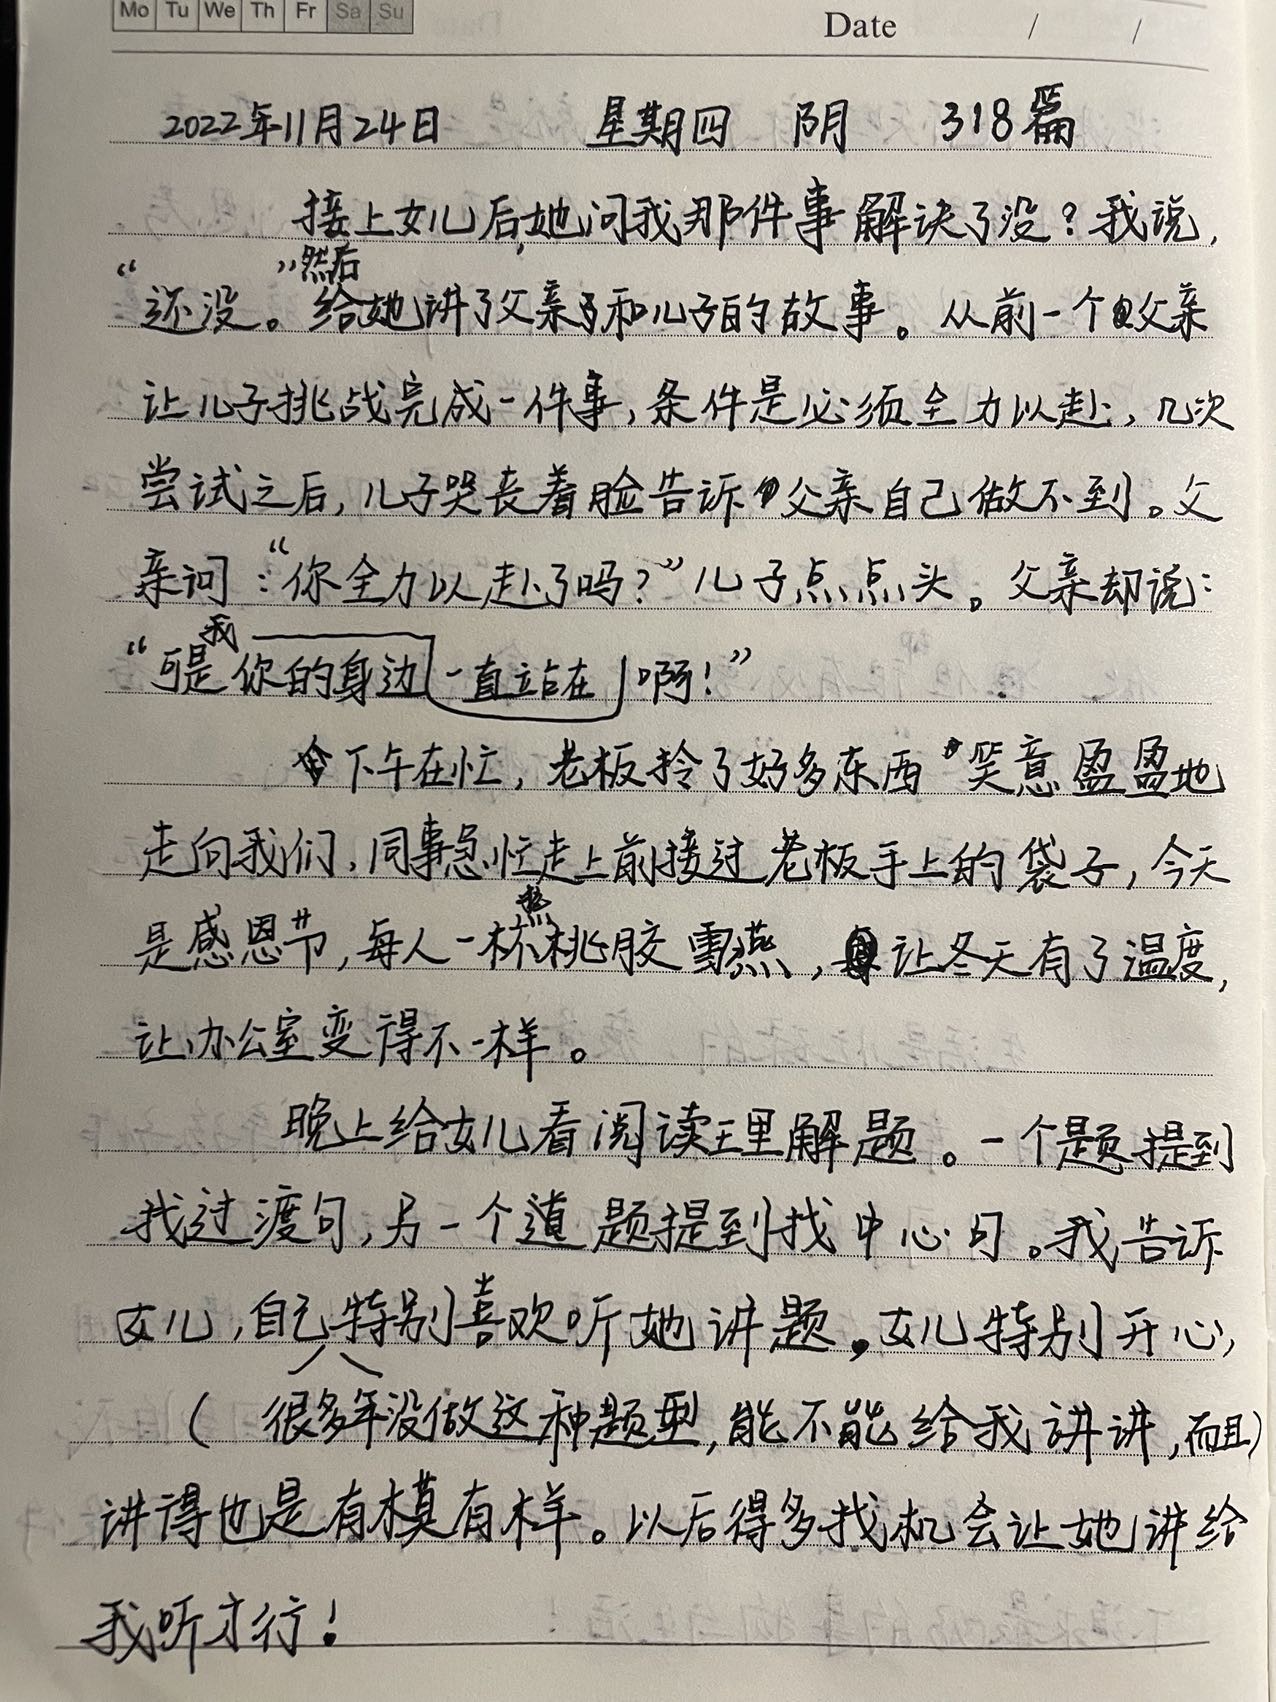 Mo Tu We Th Fr Sa Su
Date / /
2022年11月24日 星期四 阴 318篇
接上女儿后,她问我那件事解诀了没?我说,
然后
“还没。”给她讲了父亲和儿子的故事。从前一个父亲
让儿子挑战完成一件事,条件是必须全力以赴,几次
尝试之后,儿子哭丧着脸告诉父亲自己做不到。父
亲问:“你全力以赴了吗?”儿子点点头。父亲却说:
我
“可是你的身边一直站在啊!”
下午在忙,老板拎了好多东西笑意盈盈地
走向我们,同事急忙走上前接过老板手上的袋子,今天
热
是感恩节,每人一杯桃胶雪燕,让冬天有了温度,
让办公室变得不一样。
晚上给女儿看阅读理解题。一个题提到
找过渡句,另一个道题提到找中心句。我告诉
女儿,自己特别喜欢听她讲题。女儿特别开心,
(很多年没做这种题型,能不能给我讲讲,而且)
讲得也是有模有样。以后得多找机会让她讲给
我听才行!